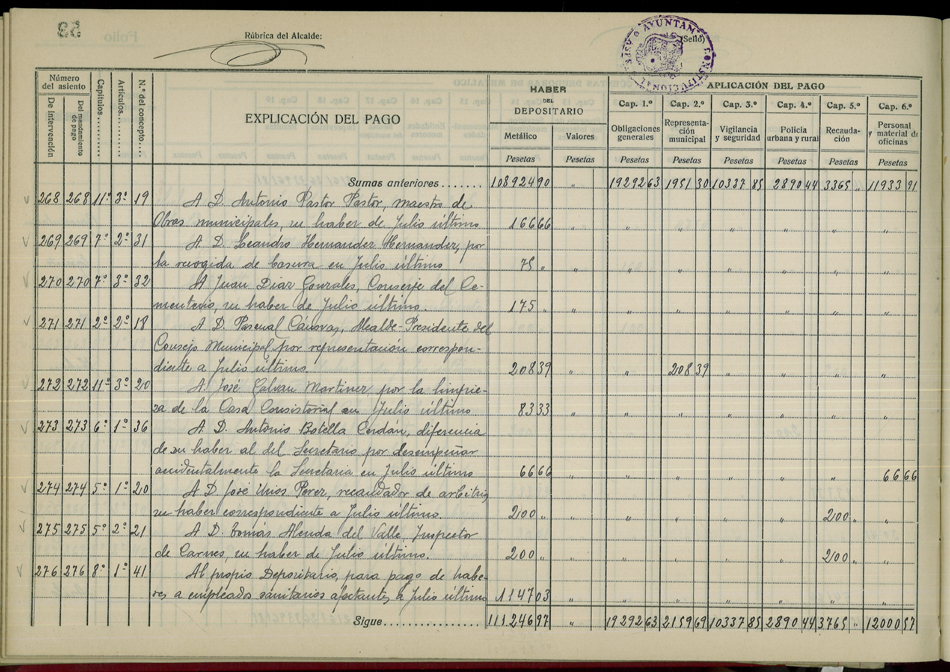 Rúbrica del Alcalde:
AYUNTAM
CONSTITUCIONAL
(Sello)
Número del asiento
De intervención
Del mandamiento de pago
Capítulos
Artículos
N.º del concepto
EXPLICACIÓN DEL PAGO
HABER DEL DEPOSITARIO
Metálico Valores
Pesetas Pesetas
APLICACIÓN DEL PAGO
Cap. 1.º Cap. 2.º Cap. 3.º Cap. 4.º Cap. 5.º Cap. 6.º
Obligaciones generales Representación municipal Vigilancia y seguridad Policía urbana y rural Recaudación Personal y material de oficinas
Pesetas Pesetas Pesetas Pesetas Pesetas Pesetas
Sumas anteriores....... 108924 90 " 19292 63 1951 30 10337 85 2890 44 3365 " 11933 91
268 268 11º 3º 19 A D. Antonio Pastor Pastor, maestro de
Obras municipales, su haber de Julio último 166 66 " " " " " " "
269 269 7º 2º 31 A D. Leandro Hernandez Hernandez, por
la recogida de basura en Julio último 75 " " " " " " " "
270 270 7º 3º 32 A Juan Diaz Gonzales, Conserje del Ce-
menterio, su haber de Julio último. 175 " " " " " " " "
271 271 2º 2º 18 A D. Pascual Cánovas, Alcalde-Presidente del
Consejo Municipal por representación correspon-
diente a Julio último. 208 39 " " 208 39 " " " "
272 272 11º 3º 20 A José Galvan Martinez por la limpie-
za de la Casa Consistorial en Julio último 83 33 " " " " " " "
273 273 6º 1º 36 A D. Antonio Botella Cerdán, diferencia
de su haber al del Secretario por desempeñar
accidentalmente la Secretaria en Julio último 66 66 " " " " " " 66 66
274 274 5º 1º 20 A D. José Perez, recaudador de arbitrios
su haber correspondiente a Julio último. 200 " " " " " " 200 " "
275 275 5º 2º 21 A D. Tomás Alenda del Valle, Inspector
de Carnes, su haber de Julio último. 200 " " " " " " 200 " "
276 276 8º 1º 41 Al propio Depositario, para pago de habe-
res a empleados sanitarios afectantes a Julio último 1147 03 " " " " " " "
Sigue................ 111246 97 19292 63 2159 69 10337 85 2890 44 3765 " 12000 57